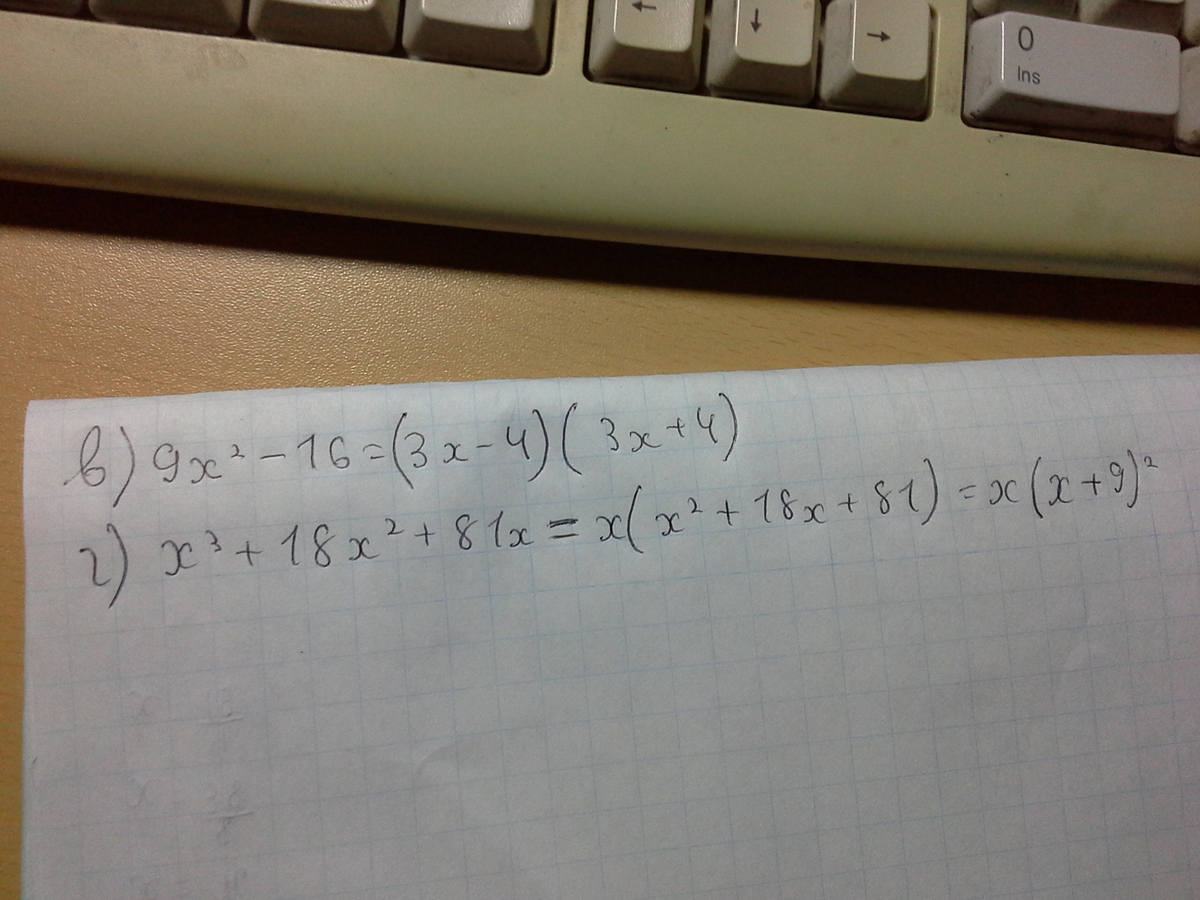 ← ↓ → 0
Ins
в) 9x² - 16 = (3x - 4)( 3x + 4)
г) x³ + 18x² + 81x = x( x² + 18x + 81) = x(x + 9)²